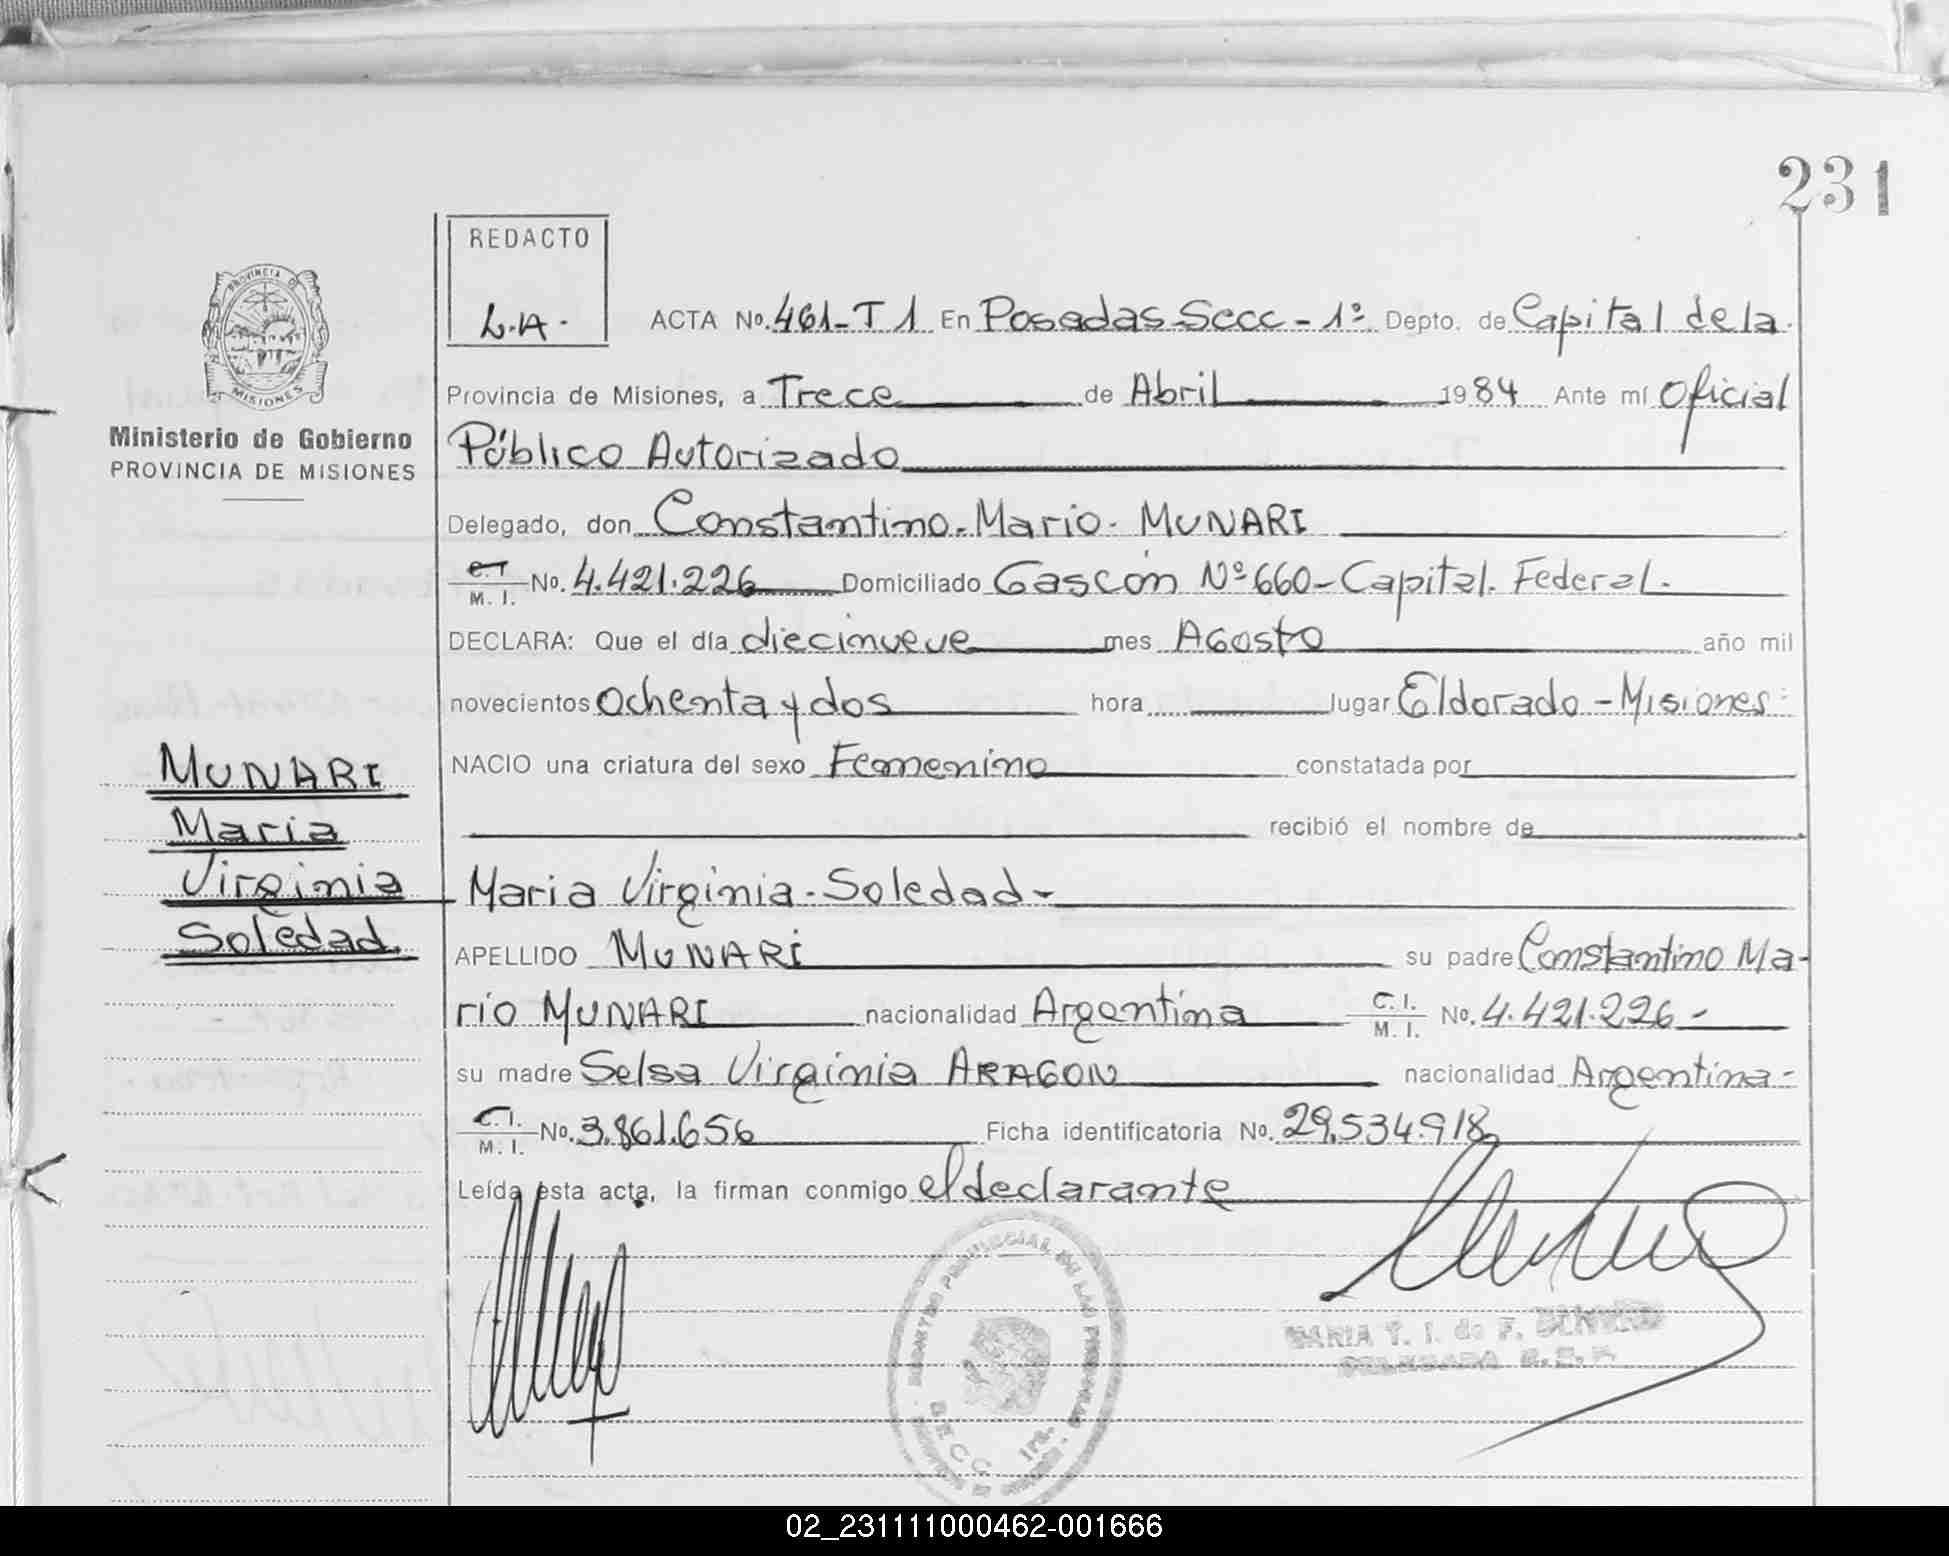 231
REDACTO
L.A.
ACTA No. 461-T 1 En Posadas Secc - 1º Depto. de Capital de la
PROVINCIA DE
MISIONES
Ministerio de Gobierno
PROVINCIA DE MISIONES
Provincia de Misiones, a Trece de Abril 1984 Ante mí Oficial
Público Autorizado
Delegado, don Constantino-Mario-MUNARI
C.I. M.I. No. 4.421.226 Domiciliado Gascón Nº 660-Capital Federal.
DECLARA: Que el día diecinueve mes Agosto año mil
novecientos ochenta y dos hora lugar Eldorado - Misiones
NACIO una criatura del sexo Femenino constatada por
recibió el nombre de
MUNARI
Maria
Virginia
Soledad
Maria Virginia-Soledad-
APELLIDO MUNARI su padre Constantino Ma-
rio MUNARI nacionalidad Argentina C.I. M.I. No. 4.421.226-
su madre Selsa Virginia ARAGON nacionalidad Argentina-
C.I. M.I. No. 3.861.656 Ficha identificatoria No. 29.534.918
Leída esta acta, la firman conmigo el declarante
MARIA T. I. de F.
02_231111000462-001666